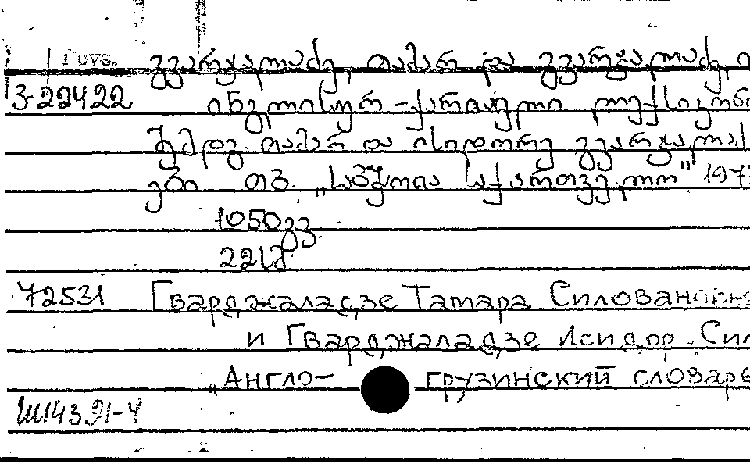 გვარჯალაძე, თამარ და გვარჯალაძე, ი
3-22422 ინგლისურ-ქართული ლექსიკონ
შემდგ. თამარ და ისიდორე გვარჯალაძ
ები თბ. „საბჭოთა საქართველო" 197
1050 გვ
22 სმ
72531 Гварджаладзе Тамара Силовановн
и Гварджаладзе Исидор Сил
„Англо- грузинский словарь